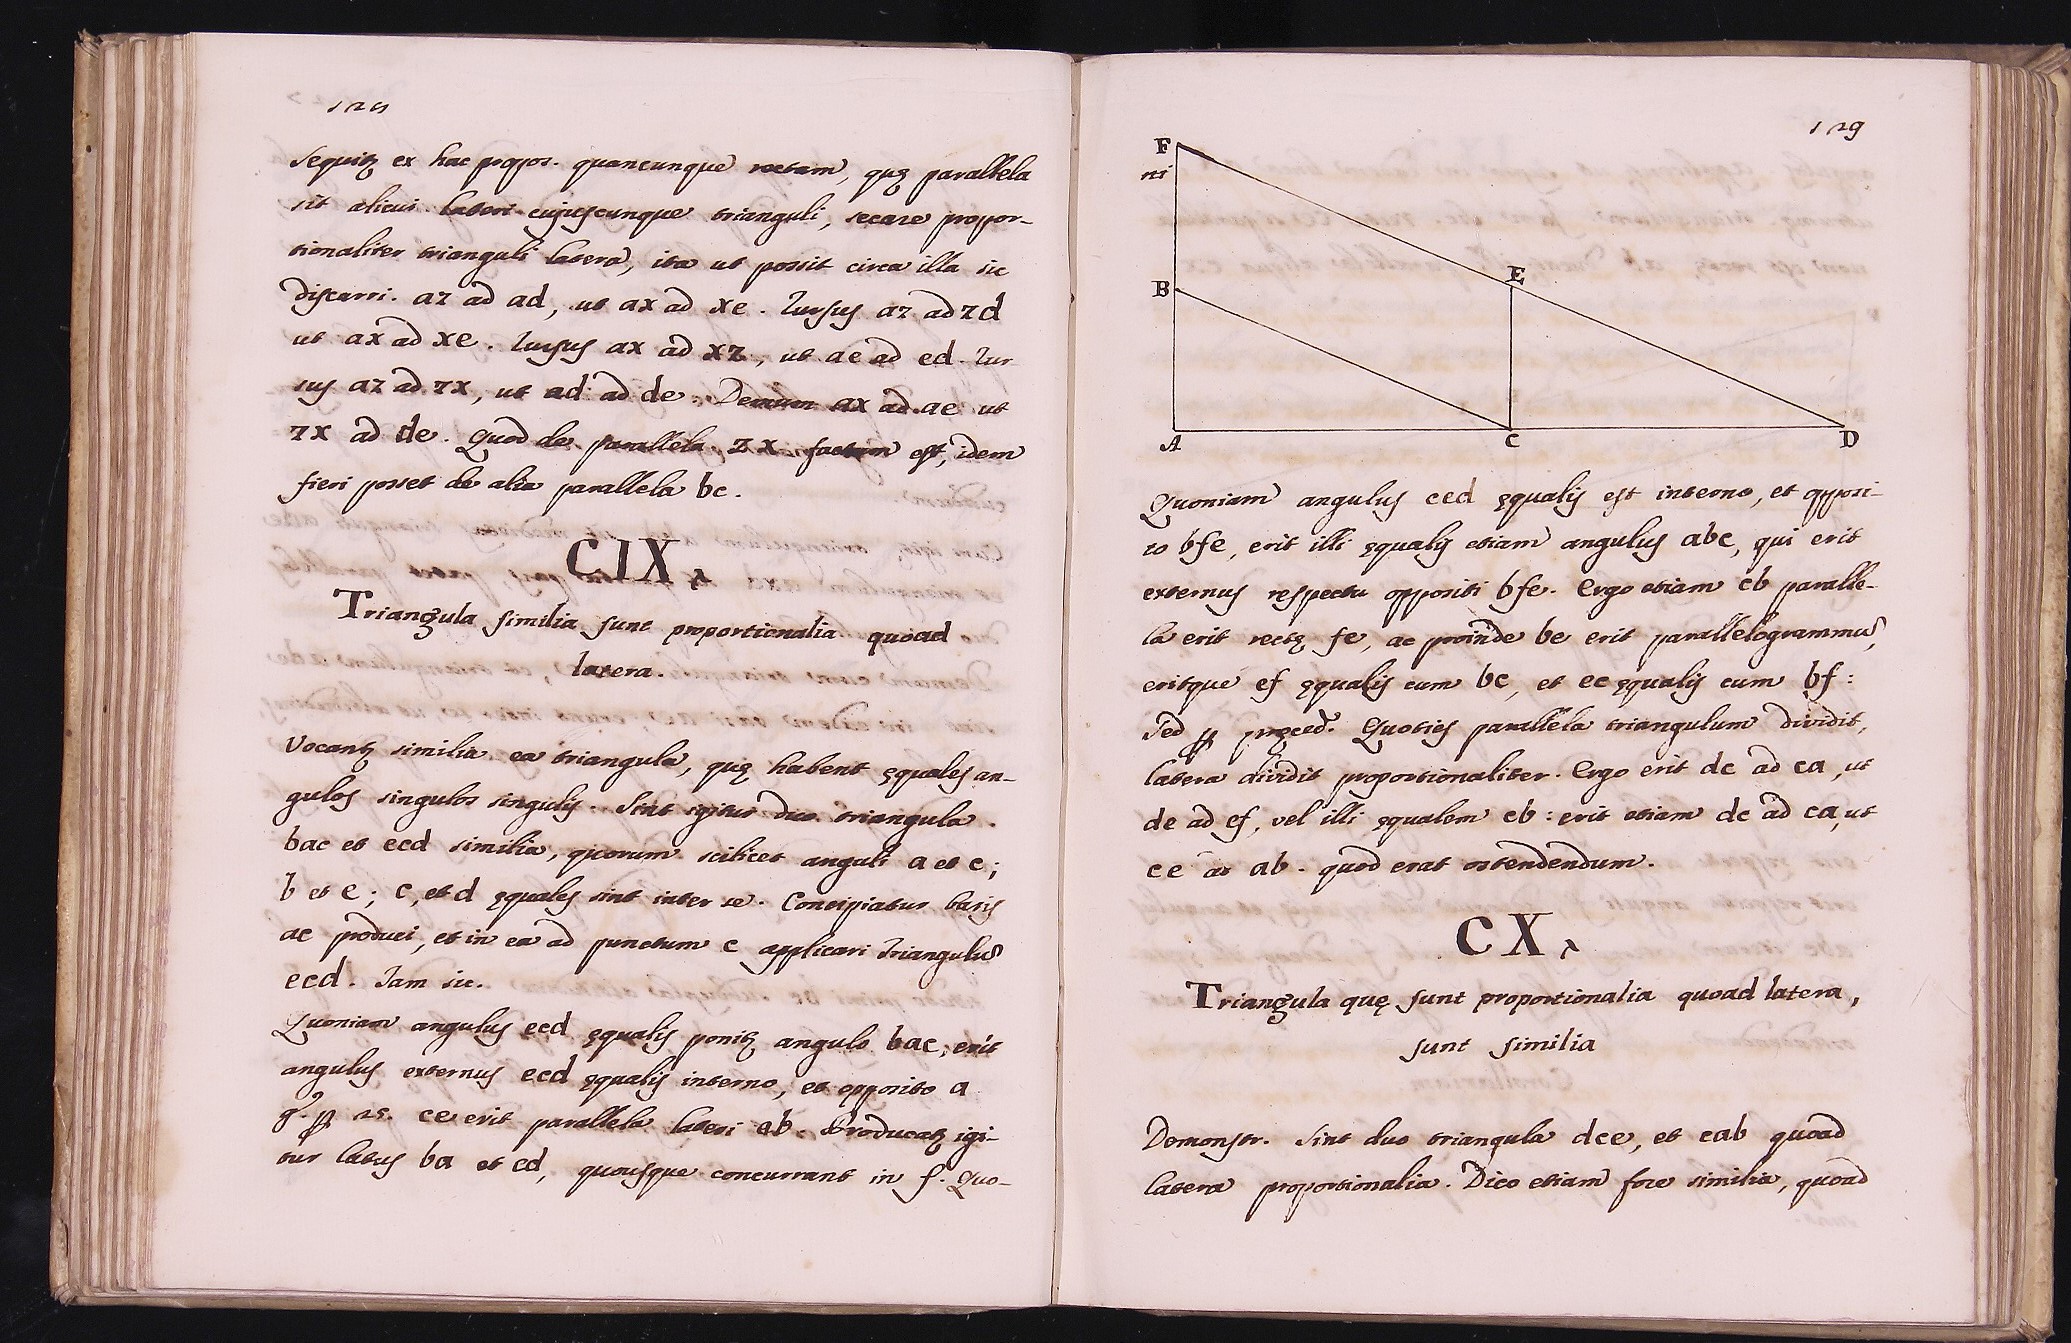 128
Sequitɀ ex hac propos. quancunque rectam, quę parallela
sit alicui lateri cujuscunque trianguli, secare propor-
tionaliter trianguli latera, ita ut possit circa illa sic
discurri. az ad ad, ut ax ad xe. Rursus az ad zd
ut ax ad xe. Rursus ax ad xz, ut ae ad ed. Rur
sus az ad zx, ut ad ad de. Demum ax ad ae ut
zx ad de. Quod de parallela zx factum est, idem
fieri posset de alia parallela bc.
CIX.
Triangula similia sunt proportionalia quoad
latera.
Vocantɀ similia ea triangula, quę habent ęquales an-
gulos singulos singulis. Sint igitur duo triangula
bac et ecd similia, quorum scilicet anguli a et c;
b et e; c, et d ęquales sint inter se. Concipiatur basis
ac produci, et in ea ad punctum c applicari triangulũ
ecd. Jam sic.
Quoniam angulus ecd ęqualis ponitɀ angulo bac, erit
angulus externus ecd ęqualis interno, et opposito a
g.º ꝑ 25. ce erit parallela lateri ab. Producatɀ igi-
tur latus ba et ed, quousque concurrant in f. Quo-
129
F
ni
B
E
A
C
D
Quoniam angulus ced ęqualis est interno, et opposi-
to bfe, erit illi ęqualis etiam angulus abc, qui erit
externus respectu oppositi bfe. Ergo etiam cb paralle-
la erit rectę fe, ac proinde be erit parallelogrammũ,
eritque ef ęqualis cum bc, et ec ęqualis cum bf:
Sed ꝑ pręced. Quoties parallela triangulum dividit,
latera dividit proportionaliter. Ergo erit dc ad ca, ut
de ad ef, vel illi ęqualem cb: erit etiam dc ad ca, ut
ce ad ab. quod erat ostendendum.
CX.
Triangula quę sunt proportionalia quoad latera,
sunt similia
Demonstr. Sint duo triangula dce, et cab quoad
latera proportionalia. Dico etiam fore similia, quoad